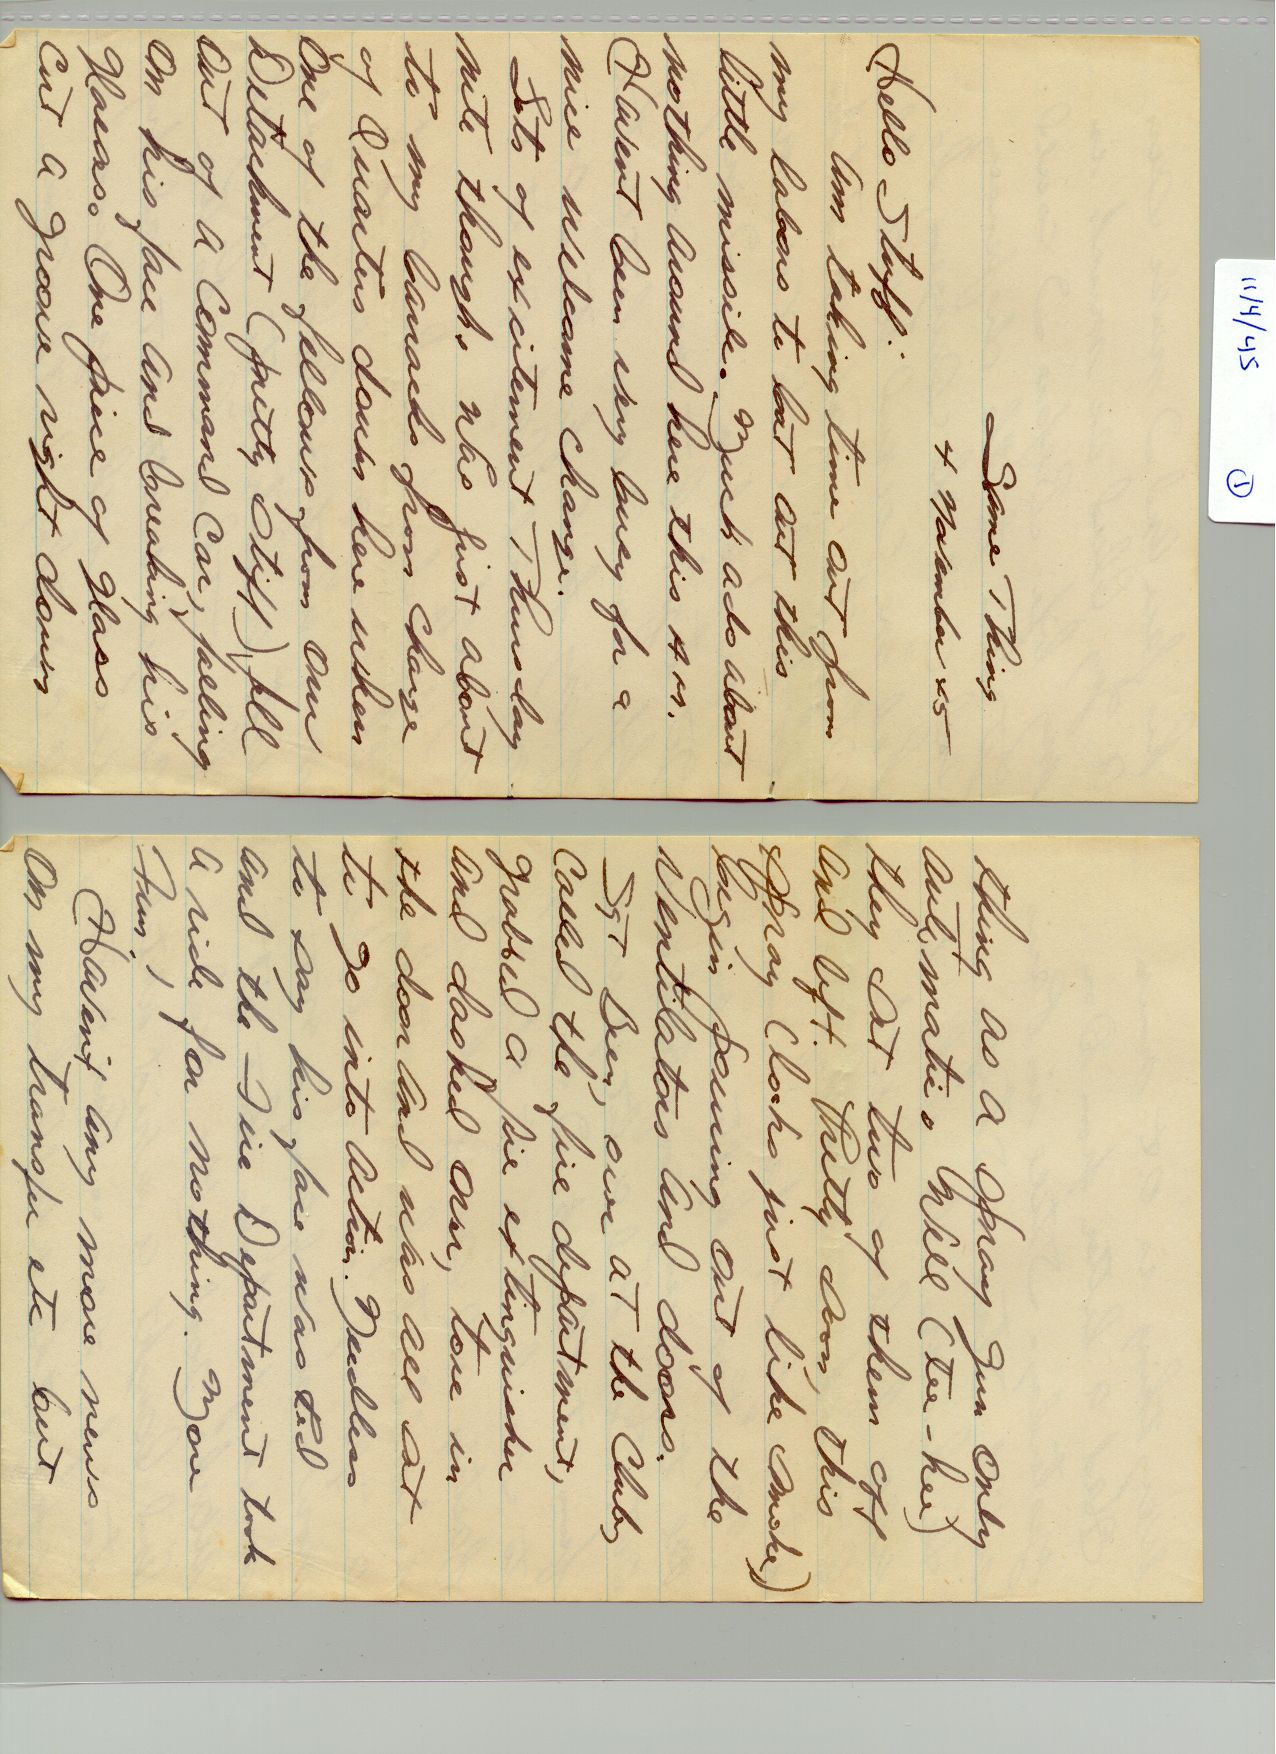 11/4/45
1
Same Thing
4 November 45
Hello Stuff:
Am taking time out from
my labors to bat out this
little missile. Much ado about
nothing around here this A.M.
Haven't been very busy for a
nice welcome change.
Lots of excitement Thursday
nite though. Was just about
to my barracks from Charge
of Quarters down here when
One of the fellows from our
Detachment (pretty stiff) fell
Out of a Command Car, falling
On his face and breaking his
Glasses. One piece of glass
Cut a groove right down
thing as a spray gun Only
automatic. Well (Tee-hee)
they set two of them off
and left. Pretty soon, this
spray (looks just like smoke)
begin pouring out of the
Ventilators and doors.
Sgt over at the Club,
Called the fire department,
grabbed a fire extinguisher
and dashed over, tore in
the door and was all set
to go into action. Needless
to say his face was red
and the Fire Department took
a ride for nothing. More
Fun!
Haven't any more news
On my transfer etc but